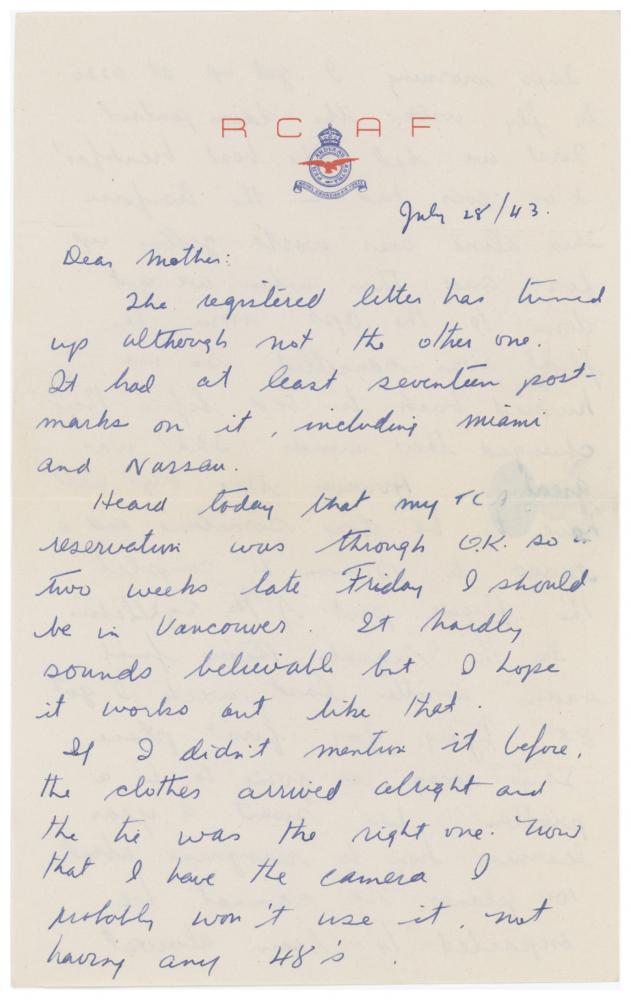 R C A F
July 28/43.
Dear Mother:
The registered letter has turned
up although not the other one.
It had at least seventeen post-
marks on it, including Miami
and Nassau.
Heard today that my TC
reservation was through O.K. so in
two weeks late Friday I should
be in Vancouver. It hardly
sounds believable but I hope
it works out like that.
If I didn't mention it before,
the clothes arrived alright and
the tie was the right one. Now
that I have the camera I
probably won't use it, not
having any 48's.